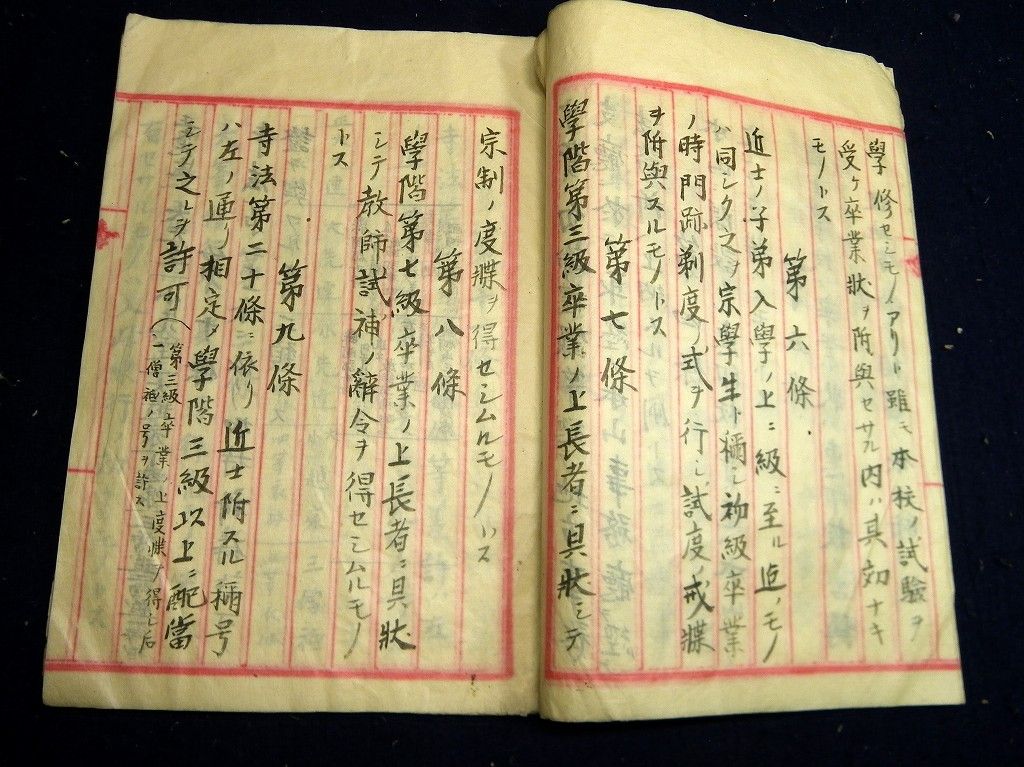 學修セシモノアリト雖モ本校ノ試驗ヲ
受ケ卒業状ヲ附與セサル内ハ其効ナキ
モノトス
第六條
近士ノ子弟入學ノ上二級ニ至ル迠ノモノ
ハ同シク之ヲ宗學生ト稱シ初級卒業
ノ時門跡剃度ノ式ヲ行ヒ試度ノ戒牒
ヲ附與スルモノトス
第七條
學階第三級卒業ノ上長者ニ具狀シテ
宗制ノ度牒ヲ得セシムルモノトス
第八條
學階第七級卒業ノ上長者ニ具狀
シテ教師試補ノ辭令ヲ得セシムルモノ
トス
第九條
寺法第二十條ニ依リ近士附スル稱号
ハ左ノ通リ相定メ學階三級以上ニ配當
シテ之レヲ許可(第三級卒業ノ上度牒ヲ得シ后
一僧祗ノ号ヲ許ス